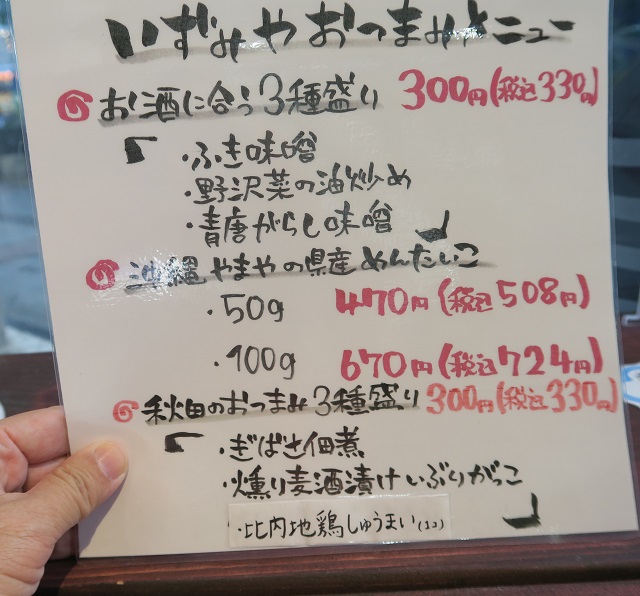 いずみやおつまみメニュー
お酒に合う3種盛り 300円(税込330円)
「・ふき味噌
・野沢菜の油炒め
・青唐がらし味噌」
沖縄やまやの県産めんたいこ
・50g 470円(税込508円)
・100g 670円(税込724円)
秋田のおつまみ3種盛り 300円(税込330円)
「・ぎばさ佃煮
・燻り麦酒漬けいぶりがっこ
・比内地鶏しゅうまい(1コ)」